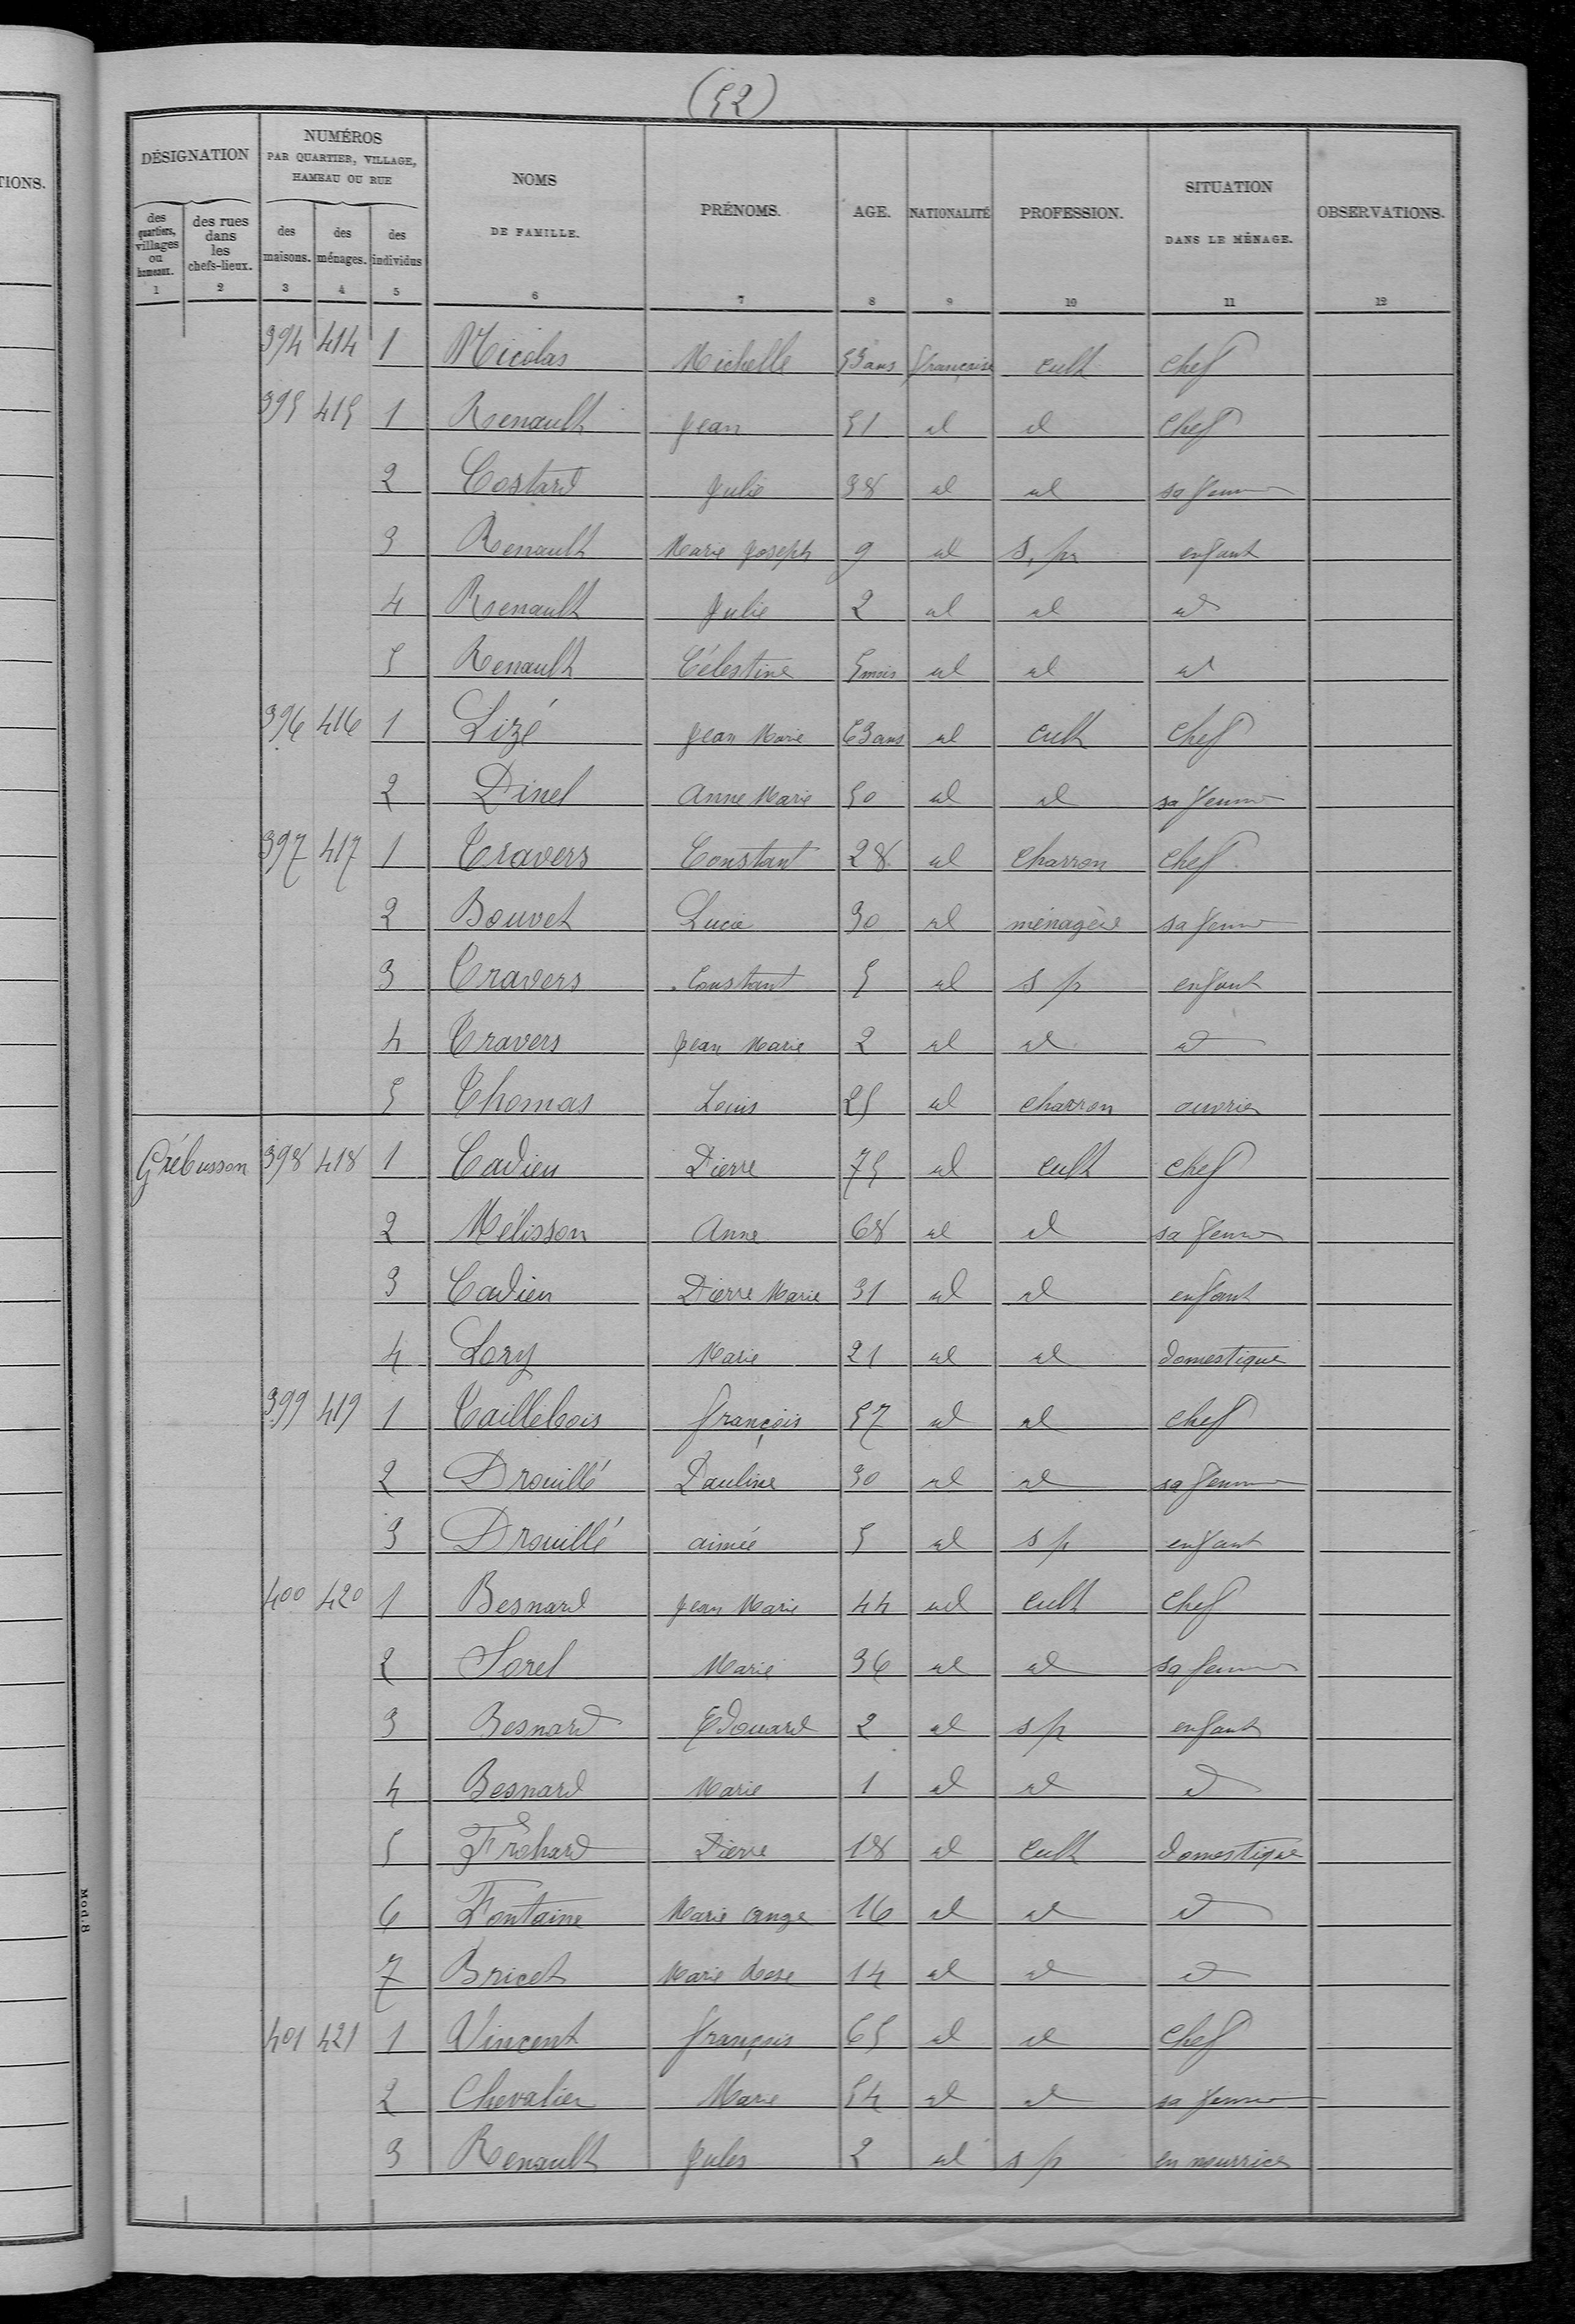 (52)
TIONS.
DÉSIGNATION
NUMÉROS
PAR QUARTIER, VILLAGE,
HAMEAU OU RUE
NOMS
DE FAMILLE.
PRÉNOMS.
AGE.
NATIONALITÉ
PROFESSION.
SITUATION
DANS LE MÉNAGE.
OBSERVATIONS.
des quartiers, villages ou hameaux.
des rues dans les chefs-lieux.
des maisons.
des ménages.
des individus
1 2 3 4 5 6 7 8 9 10 11 12
394 414 1 Nicolas Michelle 53 ans française cult chef
395 415 1 Renault Jean 51 id id chef
2 Costard Julie 38 id id sa femme
3 Renault Marie Joseph 9 id s. pr enfant
4 Renault Julie 2 id id id
5 Renault Célestine 5 mois id id id
396 416 1 Lizé Jean Marie 63 ans id cult chef
2 Pinel Anne Marie 50 id id sa femme
397 417 1 Travers Constant 28 id charron chef
2 Bouvet Lucie 30 id ménagère sa femme
3 Travers Constant 5 id s p enfant
4 Travers Jean Marie 2 id id id
5 Thomas Louis 25 id charron ouvrier
Grébusson 398 418 1 Cadieu Pierre 75 id cult chef
2 Mélisson Anne 68 id id sa femme
3 Cadieu Pierre Marie 31 id id enfant
4 Lory Marie 21 id id domestique
399 419 1 Taillebois françois 57 id id chef
2 Drouillé Pauline 30 id id sa femme
3 Drouillé aimée 5 id s p enfant
400 420 1 Besnard Jean Marie 44 id cult chef
2 Sorel Marie 36 id id sa femme
3 Besnard Edouard 2 id s p enfant
4 Besnard Marie 1 id id id
5 Fréhard Pierre 18 id cult domestique
6 Fontaine Marie Ange 16 id id id
7 Bricet Marie Rose 14 id id id
401 421 1 Vincent françois 65 id id chef
2 Chevalier Marie 54 id id sa femme
3 Renault Jules 2 id s p en nourrice
Mod. 8